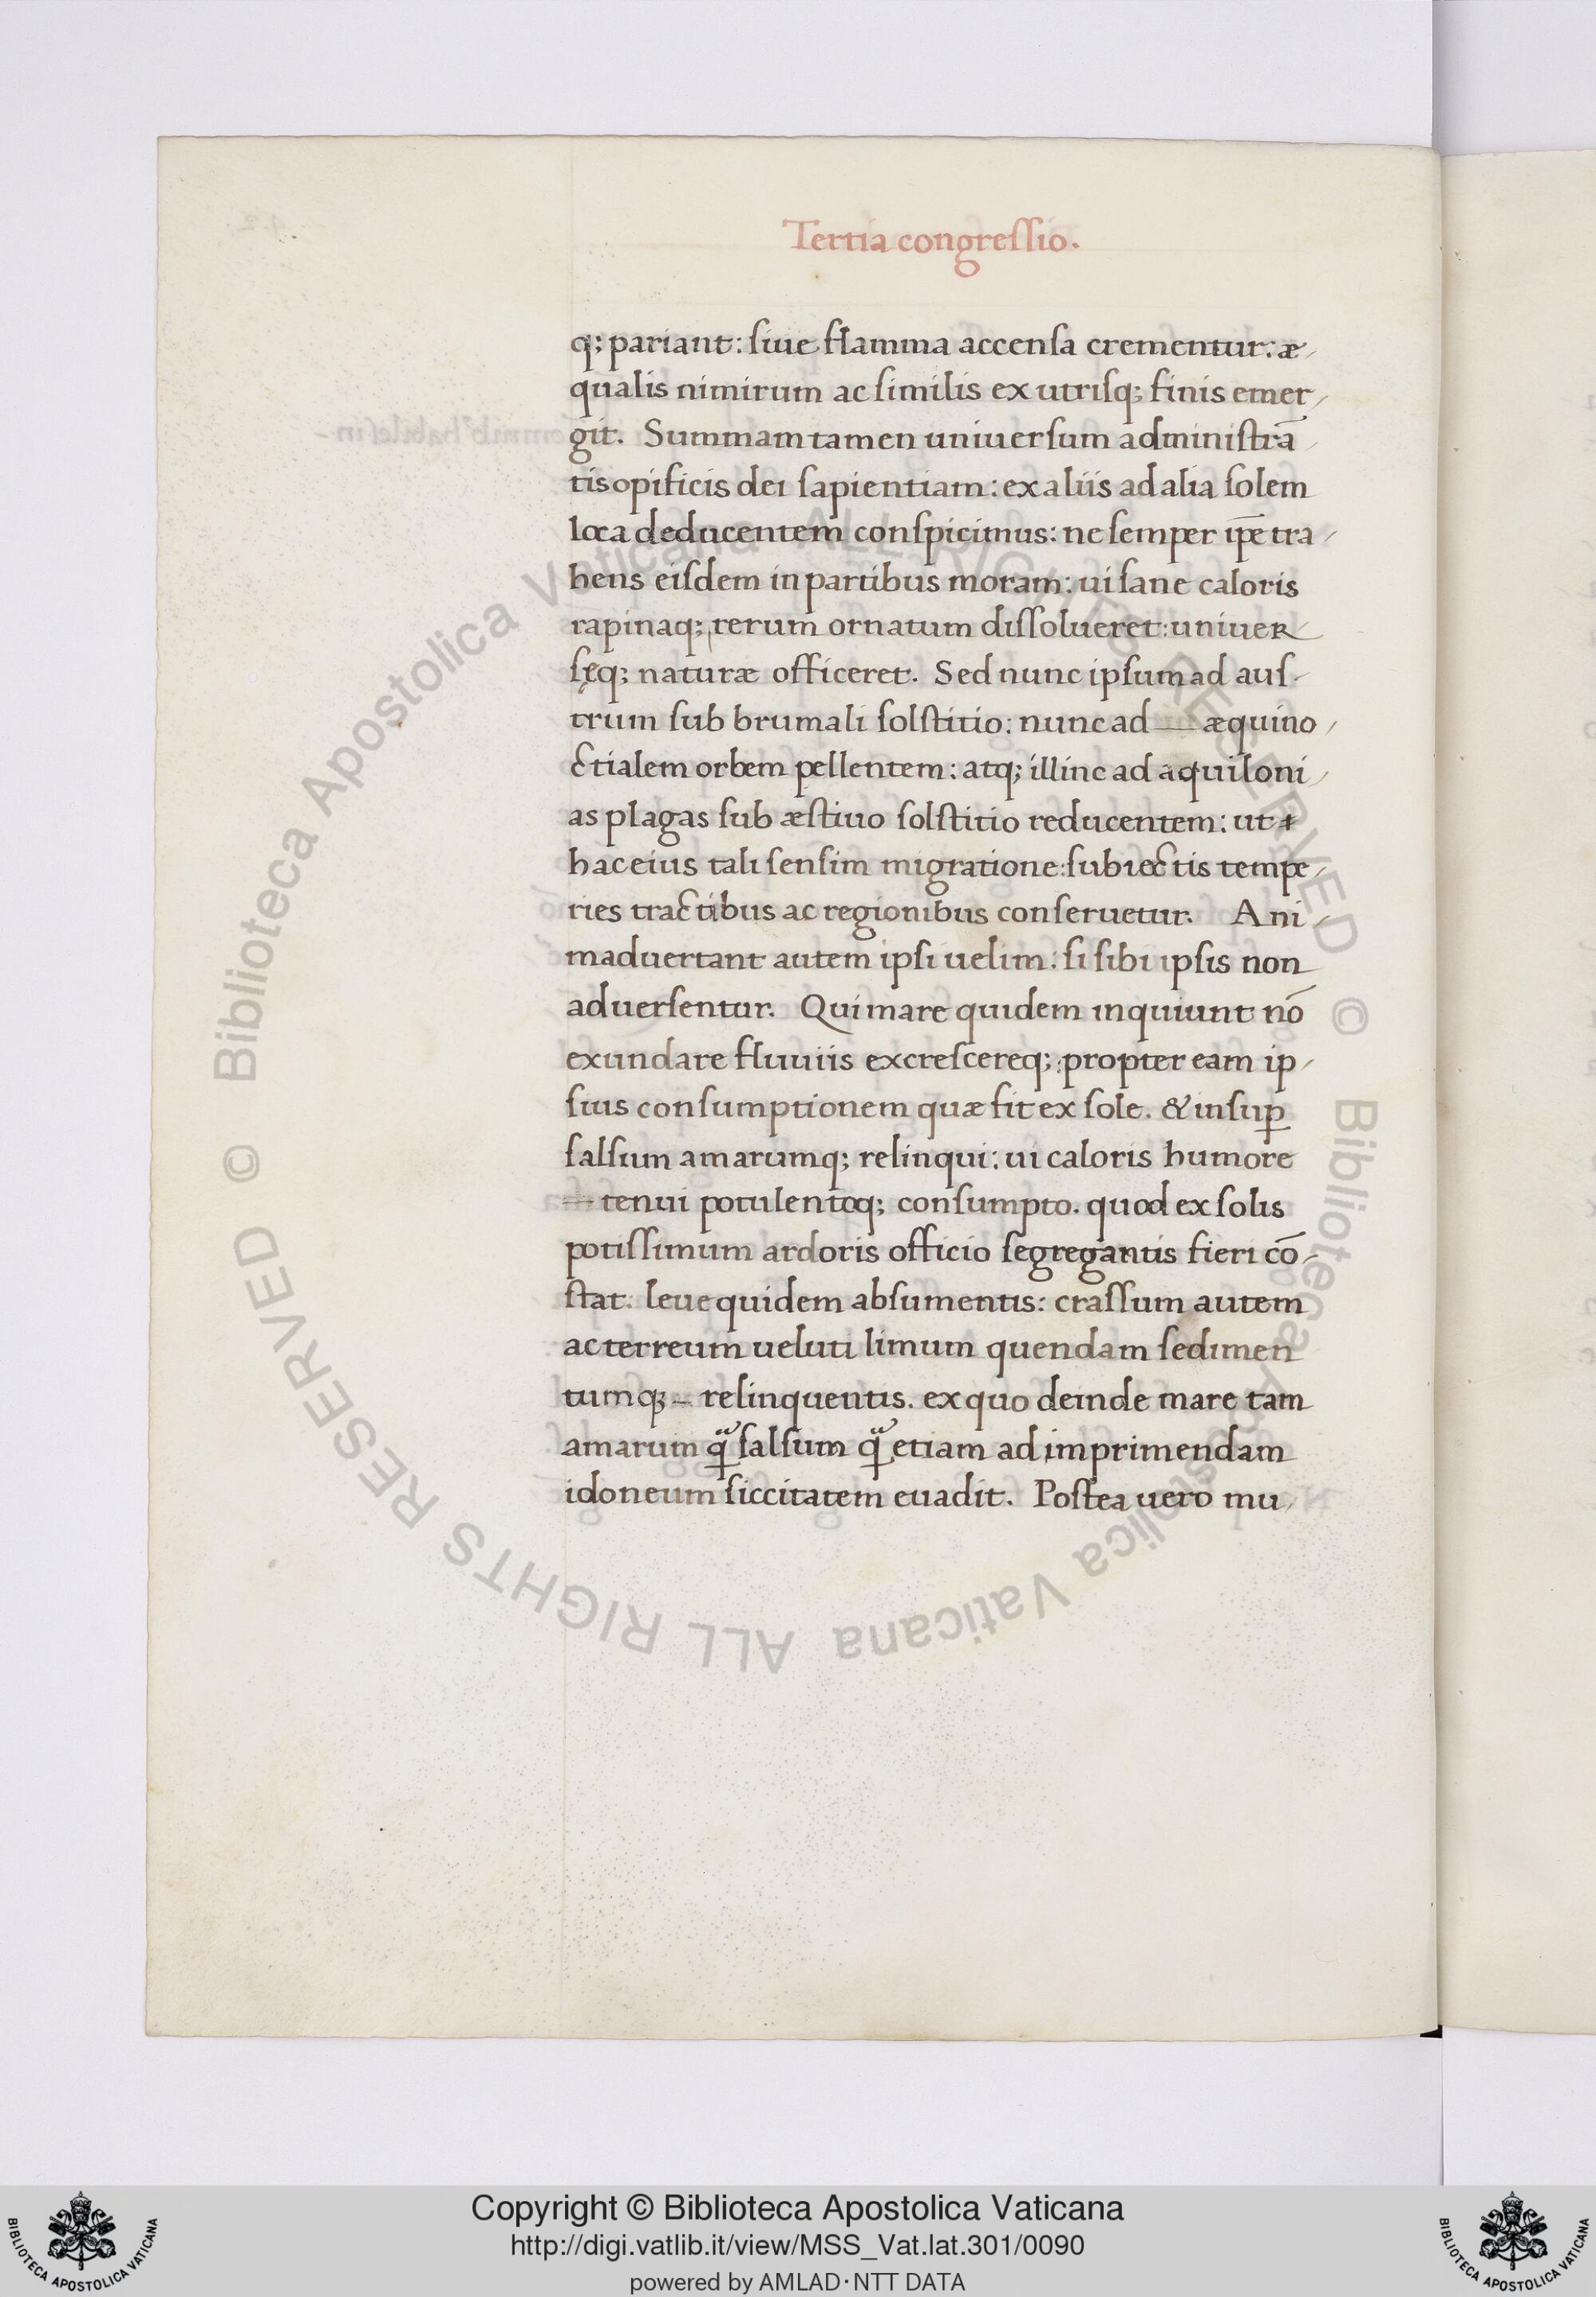 Tertia congreſſio.
q; pariant: ſiue flamma accenſa crementur: æ/
qualis nimirum ac ſimilis ex utriſq; finis emer/
git. Summam tamen uniuerſum adminiſtrā/
tis opificis dei ſapientiam: ex aliis ad alia ſolem
loca deducentem conſpicimus: ne ſemper ip̄e tra/
hens eiſdem in partibus moram: ui ſane caloris
rapinaq; rerum ornatum diſſolueret: uniueR
ſęq; naturæ officeret. Sed nunc ipſum ad auſ/
trum ſub brumali ſolſtitio: nunc ad — æquino/
ctialem orbem pellentem: atq; illinc ad aquiloni/
as plagas ſub æſtiuo ſolſtitio reducentem: ut
hac eius tali ſenſim migratione: ſubiectis tempe/
ries tractibus ac regionibus conſeruetur. Ani/
maduertant autem ipſi uelim: ſi ſibi ipſis non
aduerſentur. Qui mare quidem inquiunt nō
exundare fluuiis excreſcereq;: propter eam ip/
ſius conſumptionem quæ fit ex ſole. & inſuꝑ
ſalſum amarumq; relinqui: ui caloris humore
— tenui potulentoq; conſumpto. quod ex ſolis
potiſſimum ardoris officio ſegregantis fieri cō/
ſtat. leue quidem abſumentis: craſſum autem
ac terreum ueluti limum quendam ſedimen
tumq; – relinquentis. ex quo deinde mare tam
amarum ꝗᷓ ſalſum ꝗᷓ etiam ad imprimendam
idoneum ſiccitatem euadit. Poſtea uero mu/
© Biblioteca Apostolica Vaticana ALL RIGHTS RESERVED © Biblioteca Apostolica Vaticana ALL RIGHTS RESERVED
Copyright © Biblioteca Apostolica Vaticana
http://digi.vatlib.it/view/MSS_Vat.lat.301/0090
powered by AMLAD·NTT DATA
BIBLIOTECA APOSTOLICA VATICANA
BIBLIOTECA APOSTOLICA VATICANA